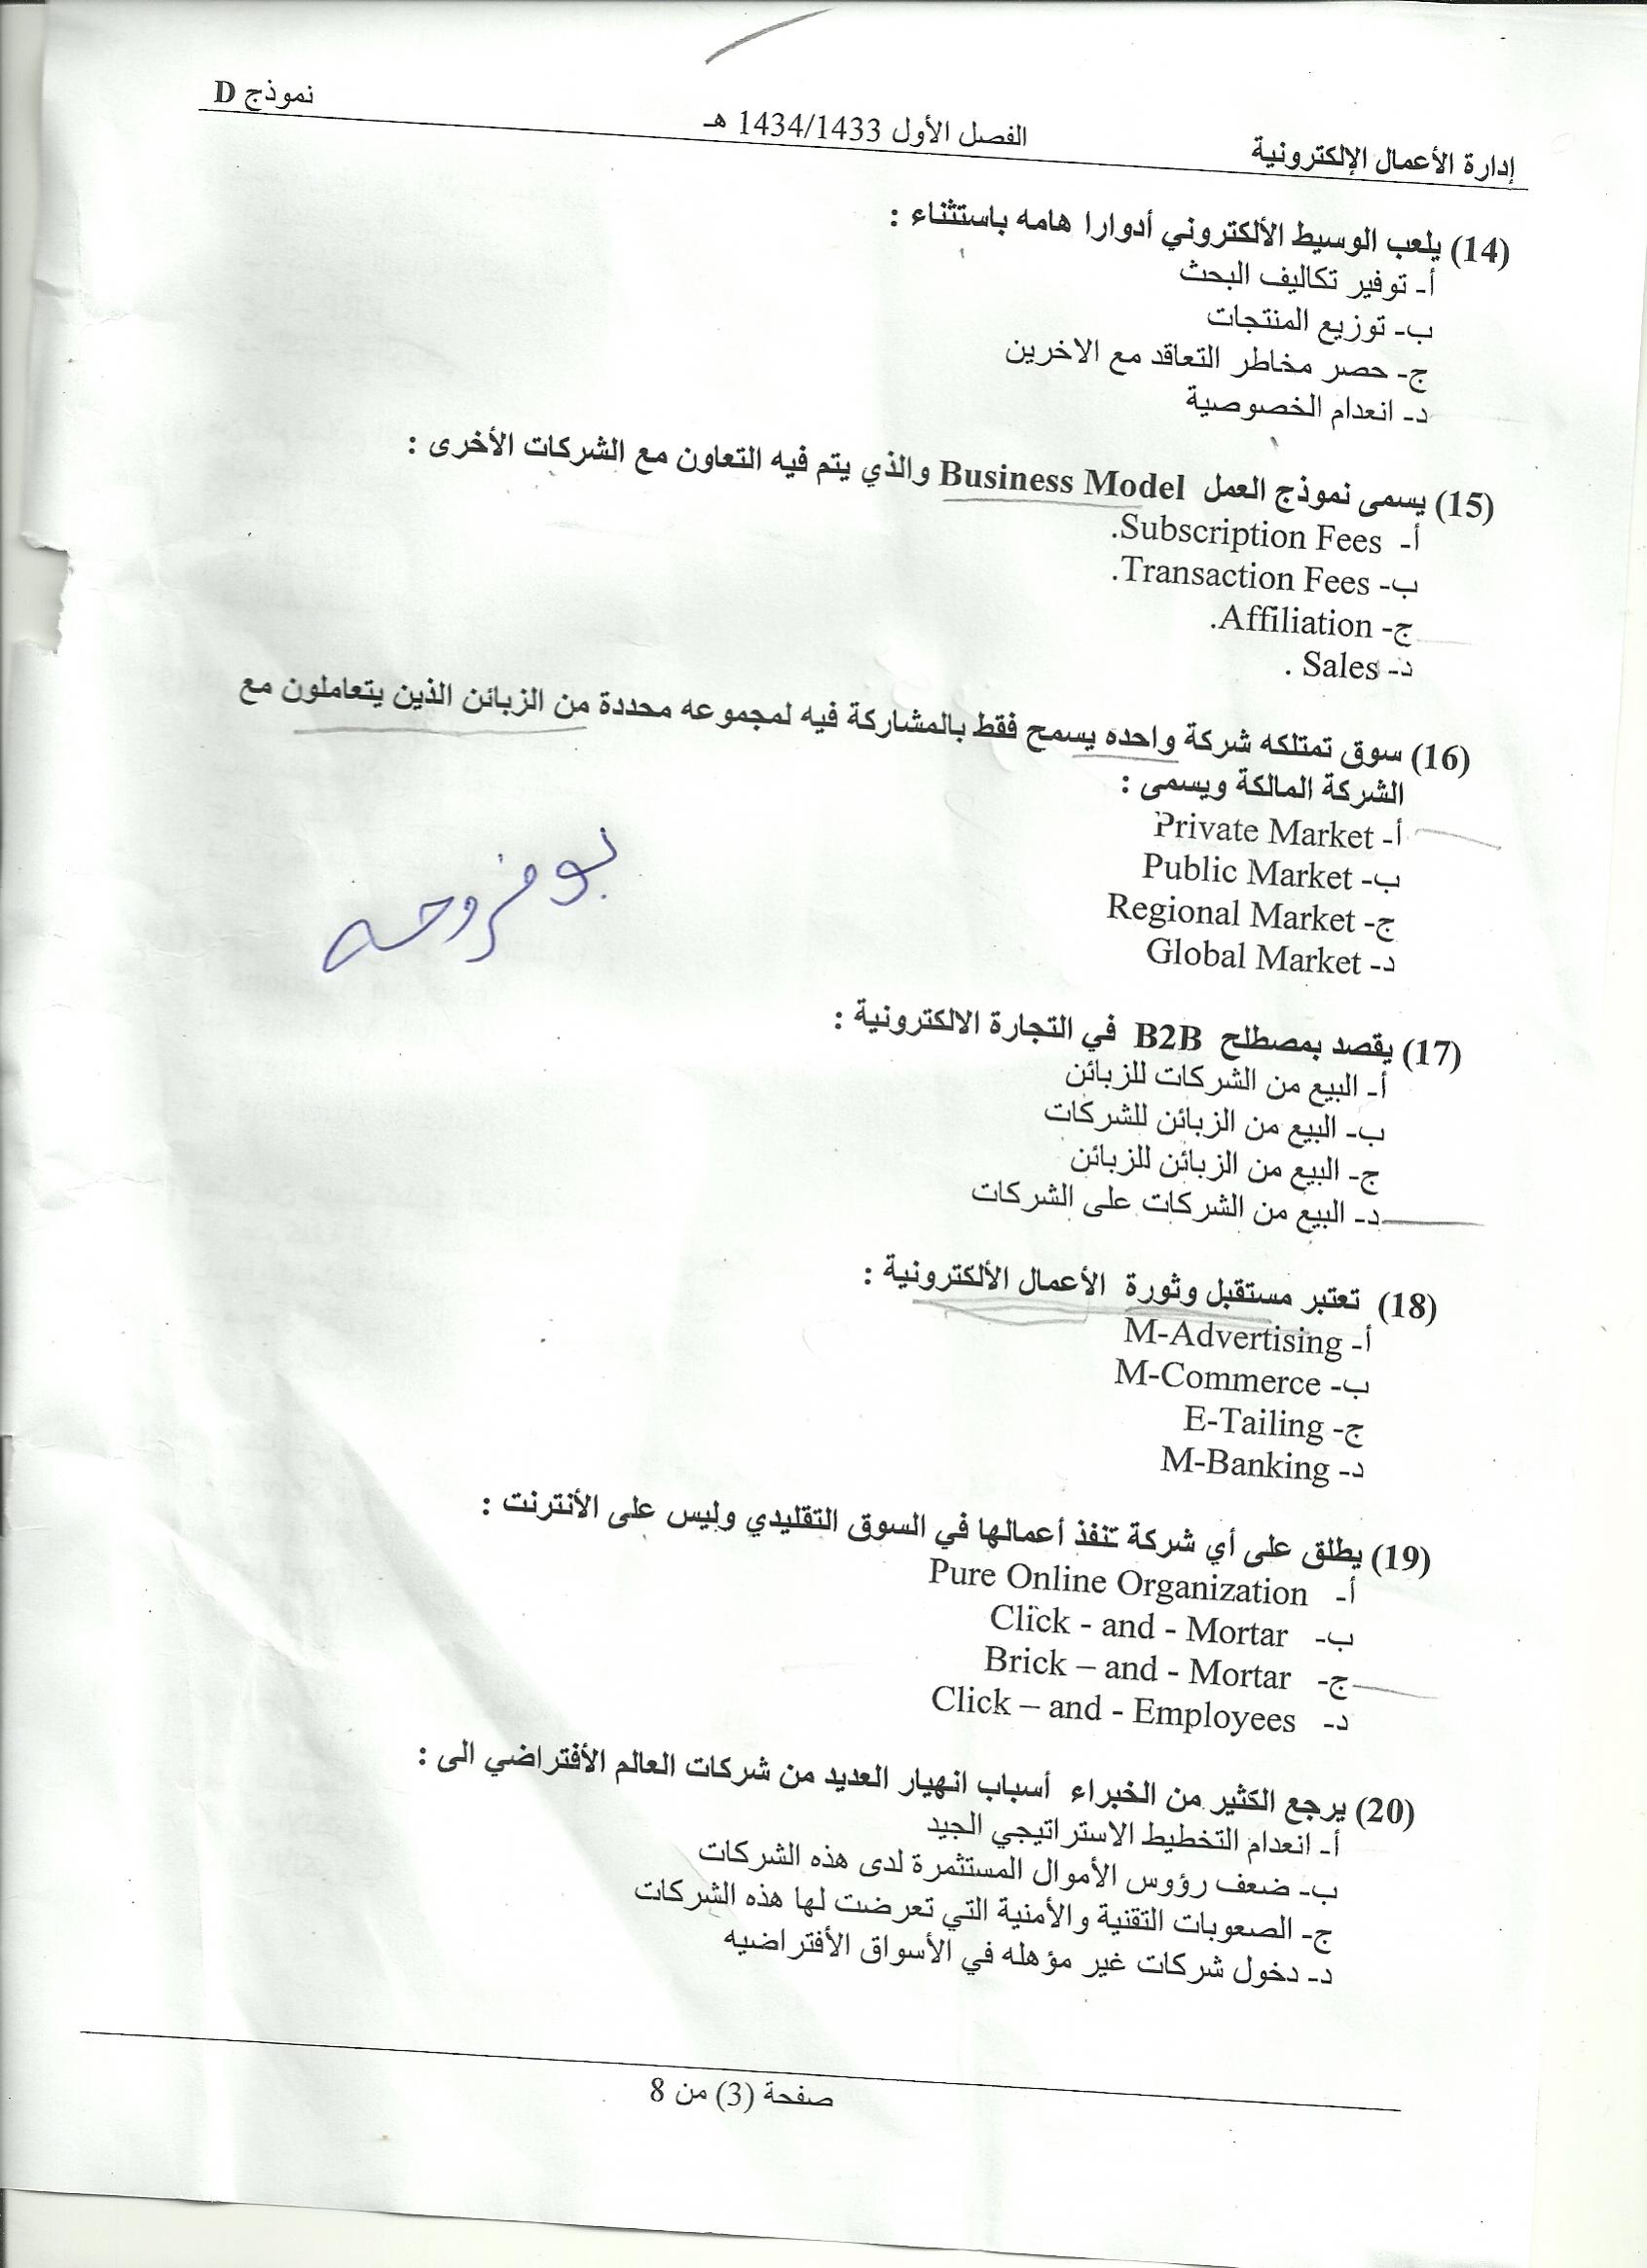 إدارة الأعمال الإلكترونية الفصل الأول 1434/1433 هـ نموذج D
(14) يلعب الوسيط الألكتروني أدوارا هامه باستثناء :
أ- توفير تكاليف البحث
ب- توزيع المنتجات
ج- حصر مخاطر التعاقد مع الاخرين
د- انعدام الخصوصية
(15) يسمى نموذج العمل Business Model والذي يتم فيه التعاون مع الشركات الأخرى :
أ- Subscription Fees.
ب- Transaction Fees.
ج- Affiliation.
د- Sales .
(16) سوق تمتلكه شركة واحده يسمح فقط بالمشاركة فيه لمجموعه محددة من الزبائن الذين يتعاملون مع
الشركة المالكة ويسمى :
أ- Private Market
ب- Public Market
ج- Regional Market
د- Global Market
بو فروحه
(17) يقصد بمصطلح B2B في التجارة الالكترونية :
أ- البيع من الشركات للزبائن
ب- البيع من الزبائن للشركات
ج- البيع من الزبائن للزبائن
د- البيع من الشركات على الشركات
(18) تعتبر مستقبل وثورة الأعمال الألكترونية :
أ- M-Advertising
ب- M-Commerce
ج- E-Tailing
د- M-Banking
(19) يطلق على أي شركة تنفذ أعمالها في السوق التقليدي وليس على الأنترنت :
أ- Pure Online Organization
ب- Click - and - Mortar
ج- Brick – and - Mortar
د- Click – and - Employees
(20) يرجع الكثير من الخبراء أسباب انهيار العديد من شركات العالم الأفتراضي الى :
أ- انعدام التخطيط الاستراتيجي الجيد
ب- ضعف رؤوس الأموال المستثمرة لدى هذه الشركات
ج- الصعوبات التقنية والأمنية التي تعرضت لها هذه الشركات
د- دخول شركات غير مؤهله في الأسواق الأفتراضيه
صفحة (3) من 8